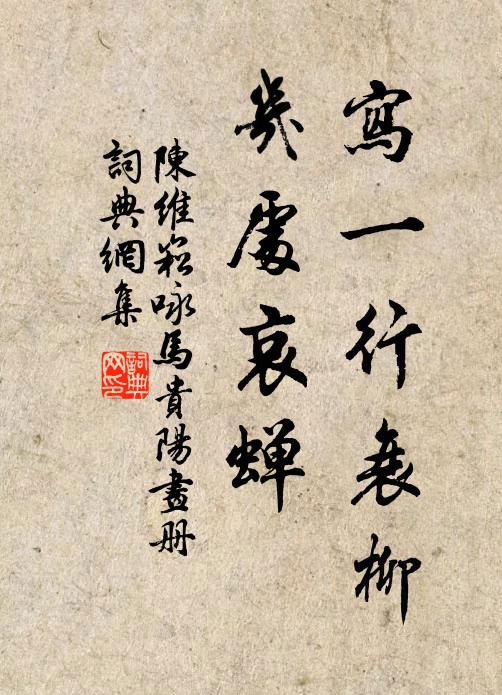 寫一行衰柳
幾處哀蟬
陳維崧咏馬貴陽畫册
詞典網集
詞典
网印